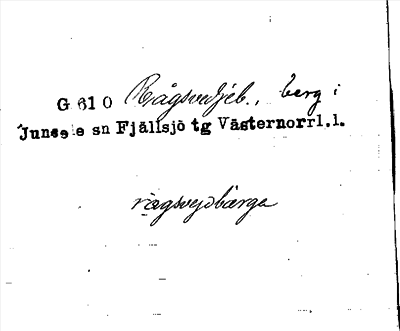 G 610 Rågsvedjeb., berg i
Junsele sn Fjällsjö tg Västernorrl.l.
rågsvejdbärge